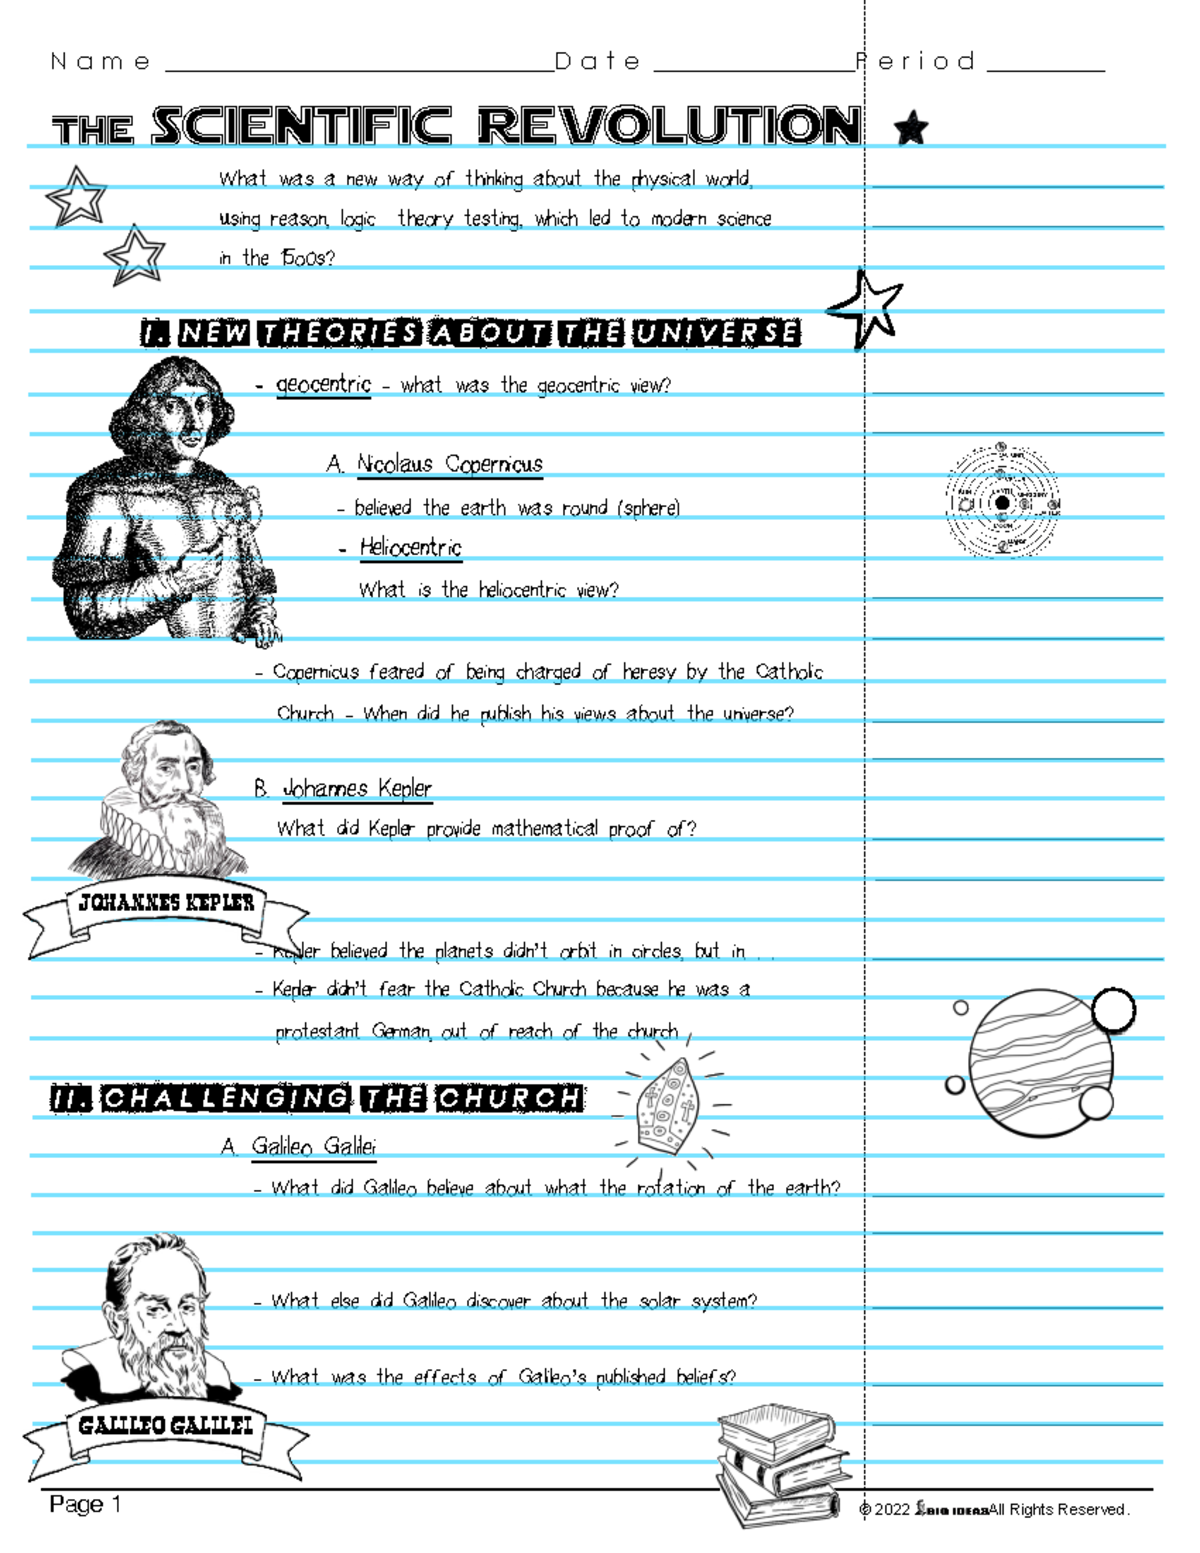 Name Date Period
THE SCIENTIFIC REVOLUTION
What was a new way of thinking about the physical world,
using reason, logic theory testing, which led to modern science
in the 1500s?
I. NEW THEORIES ABOUT THE UNIVERSE
- geocentric - what was the geocentric view?
A. Nicolaus Copernicus
- believed the earth was round (sphere)
- Heliocentric
What is the heliocentric view?
- Copernicus feared of being charged of heresy by the Catholic
Church - When did he publish his views about the universe?
B. Johannes Kepler
What did Kepler provide mathematical proof of?
JOHANNES KEPLER
- Kepler believed the planets didn't orbit in circles, but in . .
- Kepler didn't fear the Catholic Church because he was a
protestant German, out of reach of the church
II. CHALLENGING THE CHURCH
A. Galileo Galilei
- What did Galileo believe about what the rotation of the earth?
- What else did Galileo discover about the solar system?
- What was the effects of Galileo's published beliefs?
GALILEO GALILEI
Page 1
© 2022 BIG IDEAS All Rights Reserved.